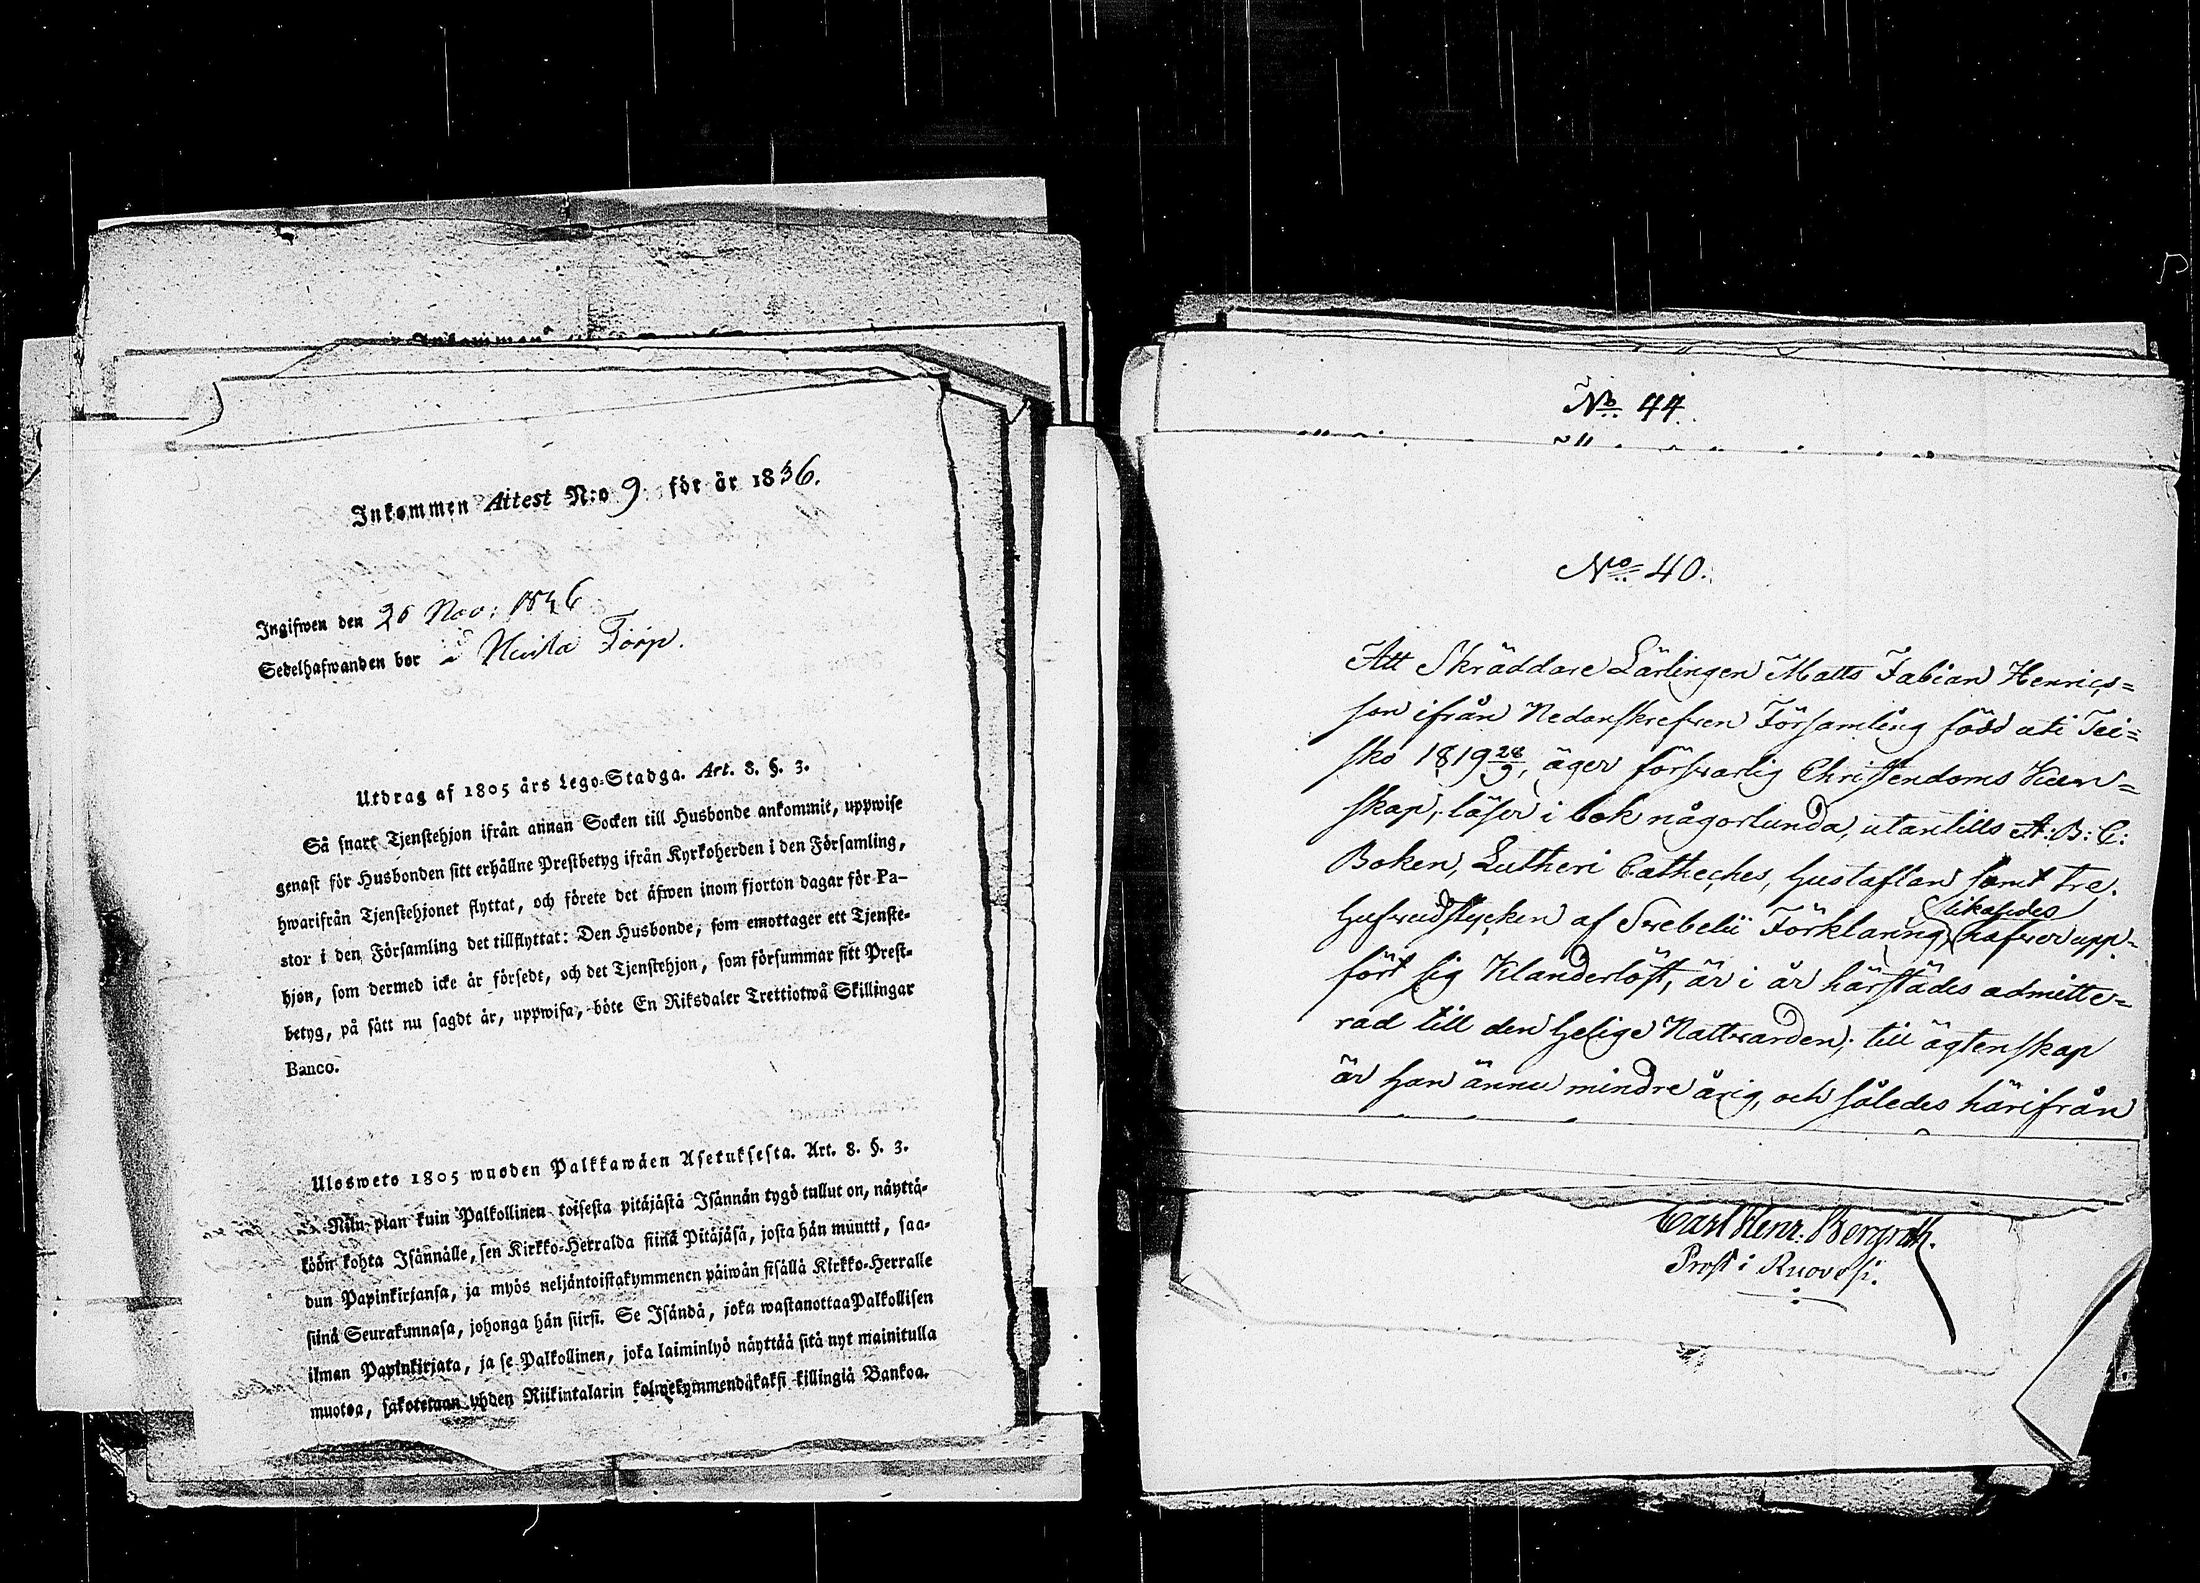 Inkommen Attest N:o 9 för år 1836.
Ingifwen den 26 Nov: 1836
Sedelhafwanden bor i Torp.
Utdrag af 1805 års Lego-Stadga. Art. 8. §. 3.
Så snart Tjenstehjon ifrån annan Socken till Husbonde ankommit, uppwise
genast för Husbonden sitt erhållne Prestbetyg ifrån Kyrkoherden i den Församling,
hwarifrån Tjenstehjonet flyttat, och förete det äfwen inom fjorton dagar för Pa-
stor i den Församling det tillflyttat: Den Husbonde, som emottager ett Tjenste-
hjon, som dermed icke är försedt, och det Tjenstehjon, som försummar sitt Prest-
betyg, på sätt nu sagdt är, uppwisa, böte En Riksdaler Trettiotwå Skillingar
Banco.
Ulosweto 1805 wuoden Palkkawäen Asetuksesta. Art. 8. §. 3.
Niin pian kuin Palkollinen toisesta pitäjästä Isännän tygö tullut on, näyttä-
köön kohta Isännälle, sen Kirkko-Herralda siinä Pitäjäsä, josta hän muutti, saa-
dun Papinkirjansa, ja myös neljäntoistakymmenen päiwän sisällä Kirkko-Herralle
siinä Seurakunnasa, johonga hän siirsi. Se Isändä, joka wastanottaa Palkollisen
ilman Papinkirjata, ja se Palkollinen, joka laiminlyö näyttää sitä nyt mainitulla
muotoa, sakotetaan yhden Riikintalarin kolmekymmendäkaksi killingiä Bankoa.
No 44.
No 40.
Att Skräddare Lärlingen Matts Fabian Henrics=
son ifrån Nedanskrefven Församling född uti Tei=
sko 1819 28/9, äger försvarlig Christendoms Kun=
skap, läser i bok någorlunda, utantills A:B:C:
Boken, Lutheri Catheches, Hustaflan samt tre
Hufvudstycken af Svebelii Förklaring, likaledes hafver upp=
fört sig Klanderlöst, är i år härstädes admitte=
rad till den Helige Nattvarden; till ägtenskap
är Han ännu mindre årig, och således härifrån
Carl Henr: Bergroth.
Prost i Ruovesi.